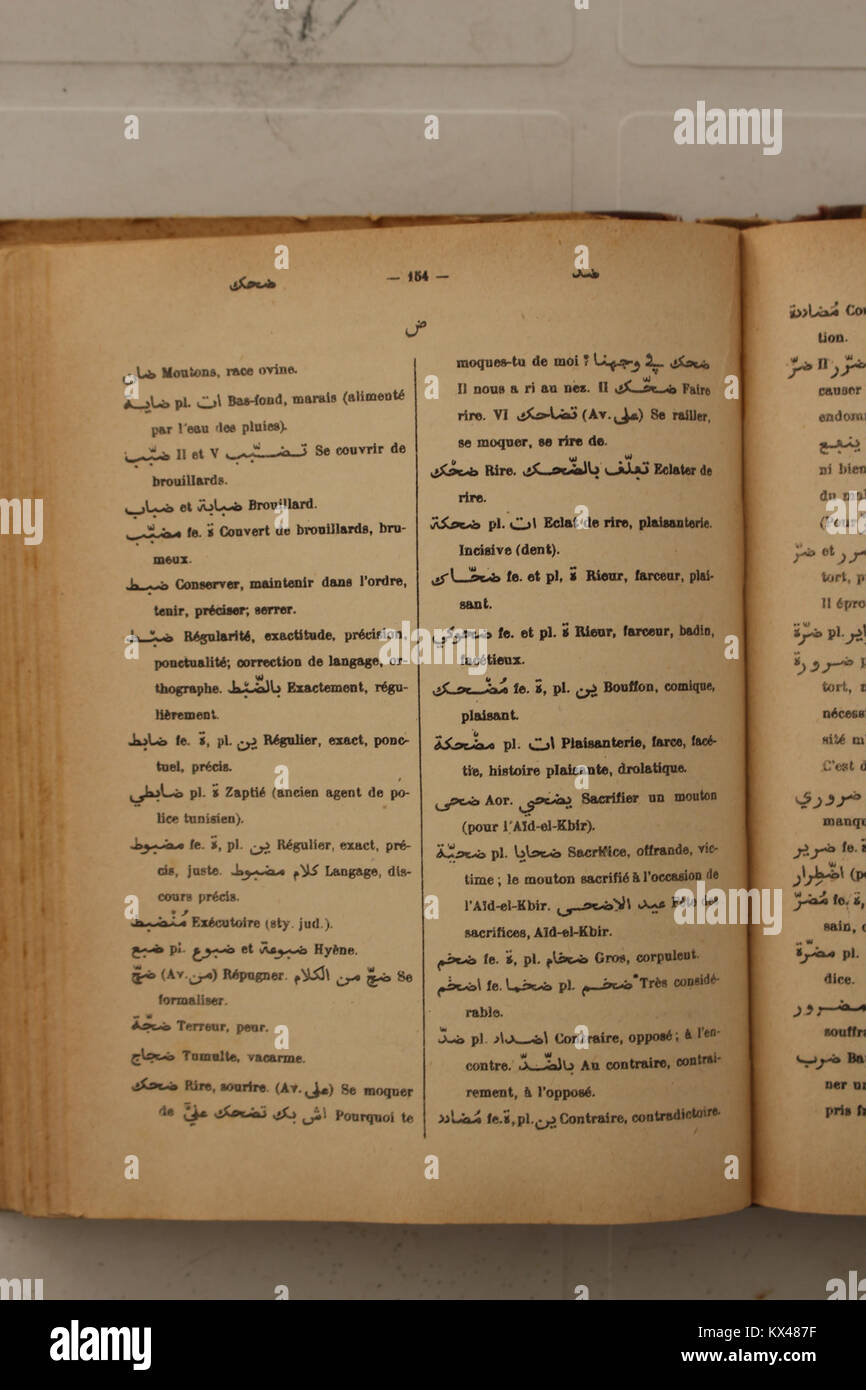 ضحك — 154 — ضد
ض
ضان Moutons, race ovine.
ضاية pl. ات Bas-fond, marais (alimenté
par l'eau des pluies).
ضبّب II et V تضبّب Se couvrir de
brouillards.
ضبابة et ضباب Brouillard.
مضبّب fe. ة Couvert de brouillards, bru-
meux.
ضبط Conserver, maintenir dans l'ordre,
tenir, préciser; serrer.
ضبْط Régularité, exactitude, précision,
ponctualité; correction de langage, or-
thographe. بالضّبْط Exactement, régu-
lièrement.
ضابط fe. ة, pl. ين Régulier, exact, ponc-
tuel, précis.
ضابطي pl. ة Zaptié (ancien agent de po-
lice tunisien).
مضبوط fe. ة, pl. ين Régulier, exact, pré-
cis, juste. كلام مضبوط Langage, dis-
cours précis.
مُنْضبط Exécutoire (sty. jud.).
ضبع pl. ضبوع et ضبوعة Hyène.
ضجّ (Av. من) Répugner. ضجّ من الكلام Se
formaliser.
ضجّة Terreur, peur.
ضجاج Tumulte, vacarme.
ضحك Rire, sourire. (Av. على) Se moquer
de اش بك تضحك عليَّ Pourquoi te
moques-tu de moi ? ضحك في وجهنا
Il nous a ri au nez. II ضحّك Faire
rire. VI تضاحك (Av. على) Se railler,
se moquer, se rire de.
ضحْك Rire. تعلّف بالضّحك Eclater de
rire.
ضحكة pl. ات Eclat de rire, plaisanterie.
Incisive (dent).
ضحّاك fe. et pl, ة Rieur, farceur, plai-
sant.
ضحوكي fe. et pl. ة Rieur, farceur, badin,
facétieux.
مُضْحك fe. ة, pl. ين Bouffon, comique,
plaisant.
مضْحكة pl. ات Plaisanterie, farce, facé-
tie, histoire plaisante, drolatique.
ضحى Aor. يضحي Sacrifier un mouton
(pour l'Aïd-el-Kbir).
ضحيّة pl. ضحايا Sacrifice, offrande, vic-
time ; le mouton sacrifié à l'occasion de
l'Aïd-el-Kbir. عيد الاضحى Fête des
sacrifices, Aïd-el-Kbir.
ضخم fe. ة, pl. ضخام Gros, corpulent.
اضخم fe. ضخما pl. ضخم Très considé-
rable.
ضدّ pl. اضداد Contraire, opposé ; à l'en-
contre. بالضّدّ Au contraire, contrai-
rement, à l'opposé.
مُضادد fe. ة, pl. ين Contraire, contradictoire.
مُضاددة Con
tion.
ضرّ II ضرّر
causer
endom
ينفع
ni bien
du mal
(Pour
ضرّ et ضرر
tort, p
Il épro
ضرّة pl.
ضرورة
tort, n
nécess
sité m
C'est d
ضروري
manqu
ضرير fe. ة
اضْطِرار (p
مُضرّ fe. ة,
sain,
مضرّة pl.
dice.
مضرور
souffr
ضرب Ba
ner u
pris f
alamy
Image ID: KX487F
www.alamy.com